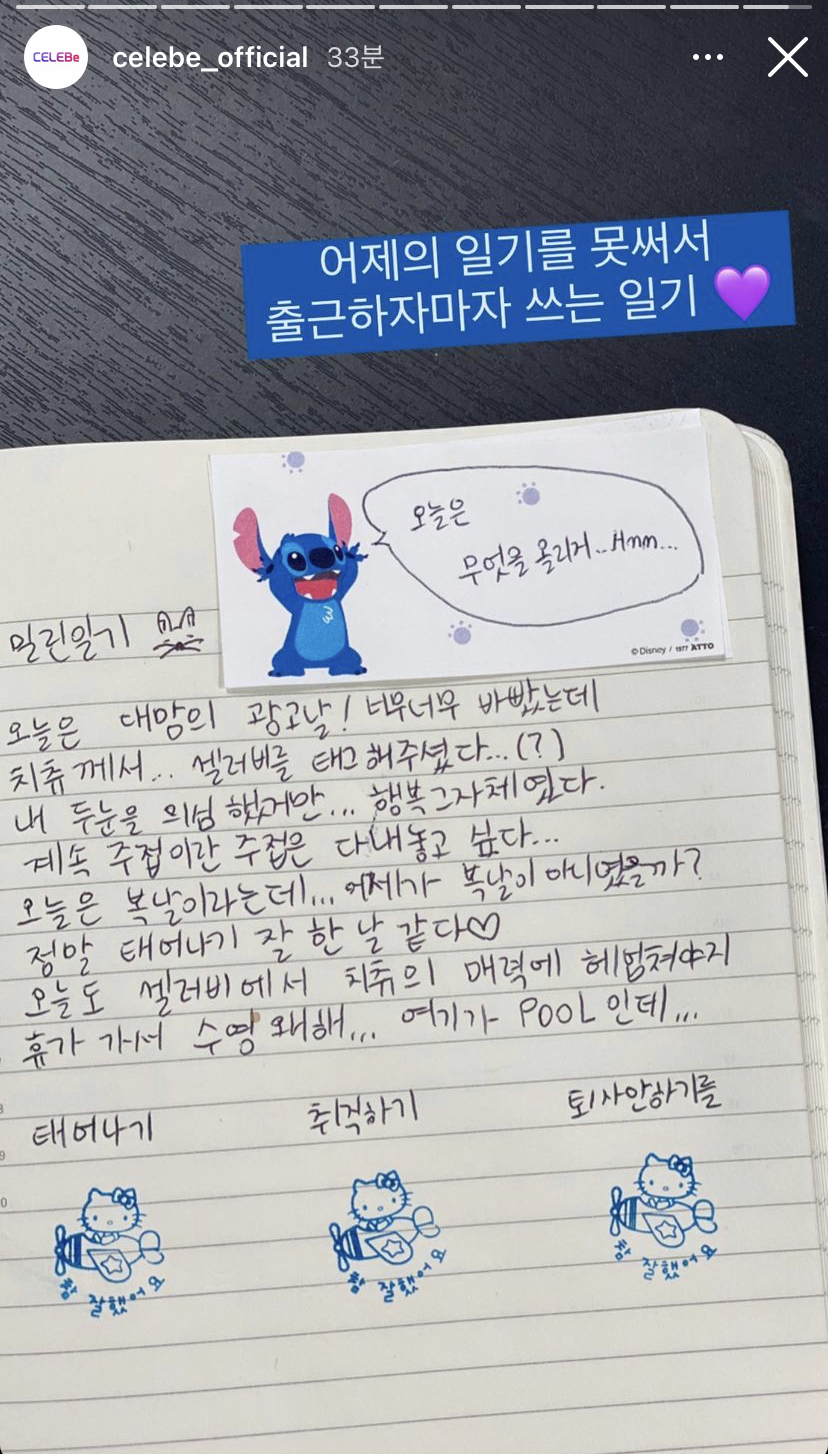 CELEBe
celebe_official 33분
어제의 일기를 못써서
출근하자마자 쓰는 일기
오늘은
무엇을 올리거..Hmm...
© Disney / 1977 ATTO
밀린일기
오늘은 대망의 광고날! 너무너무 바빴는데
치츄께서... 셀러비를 태그해주셨다...(?)
내 두눈을 의심했지만... 행복그자체였다.
계속 주접이란 주접은 다내놓고 싶다...
오늘은 복날이라는데... 어제가 복날이 아니였을까?
정말 태어나기 잘 한 날 같다♡
오늘도 셀러비에서 치츄의 매력에 헤엄쳐야지
휴가 가서 수영 왜해... 여기가 POOL인데...
태어나기 취직하기 퇴사안하기를
참 잘했어요 참 잘했어요 참 잘했어요